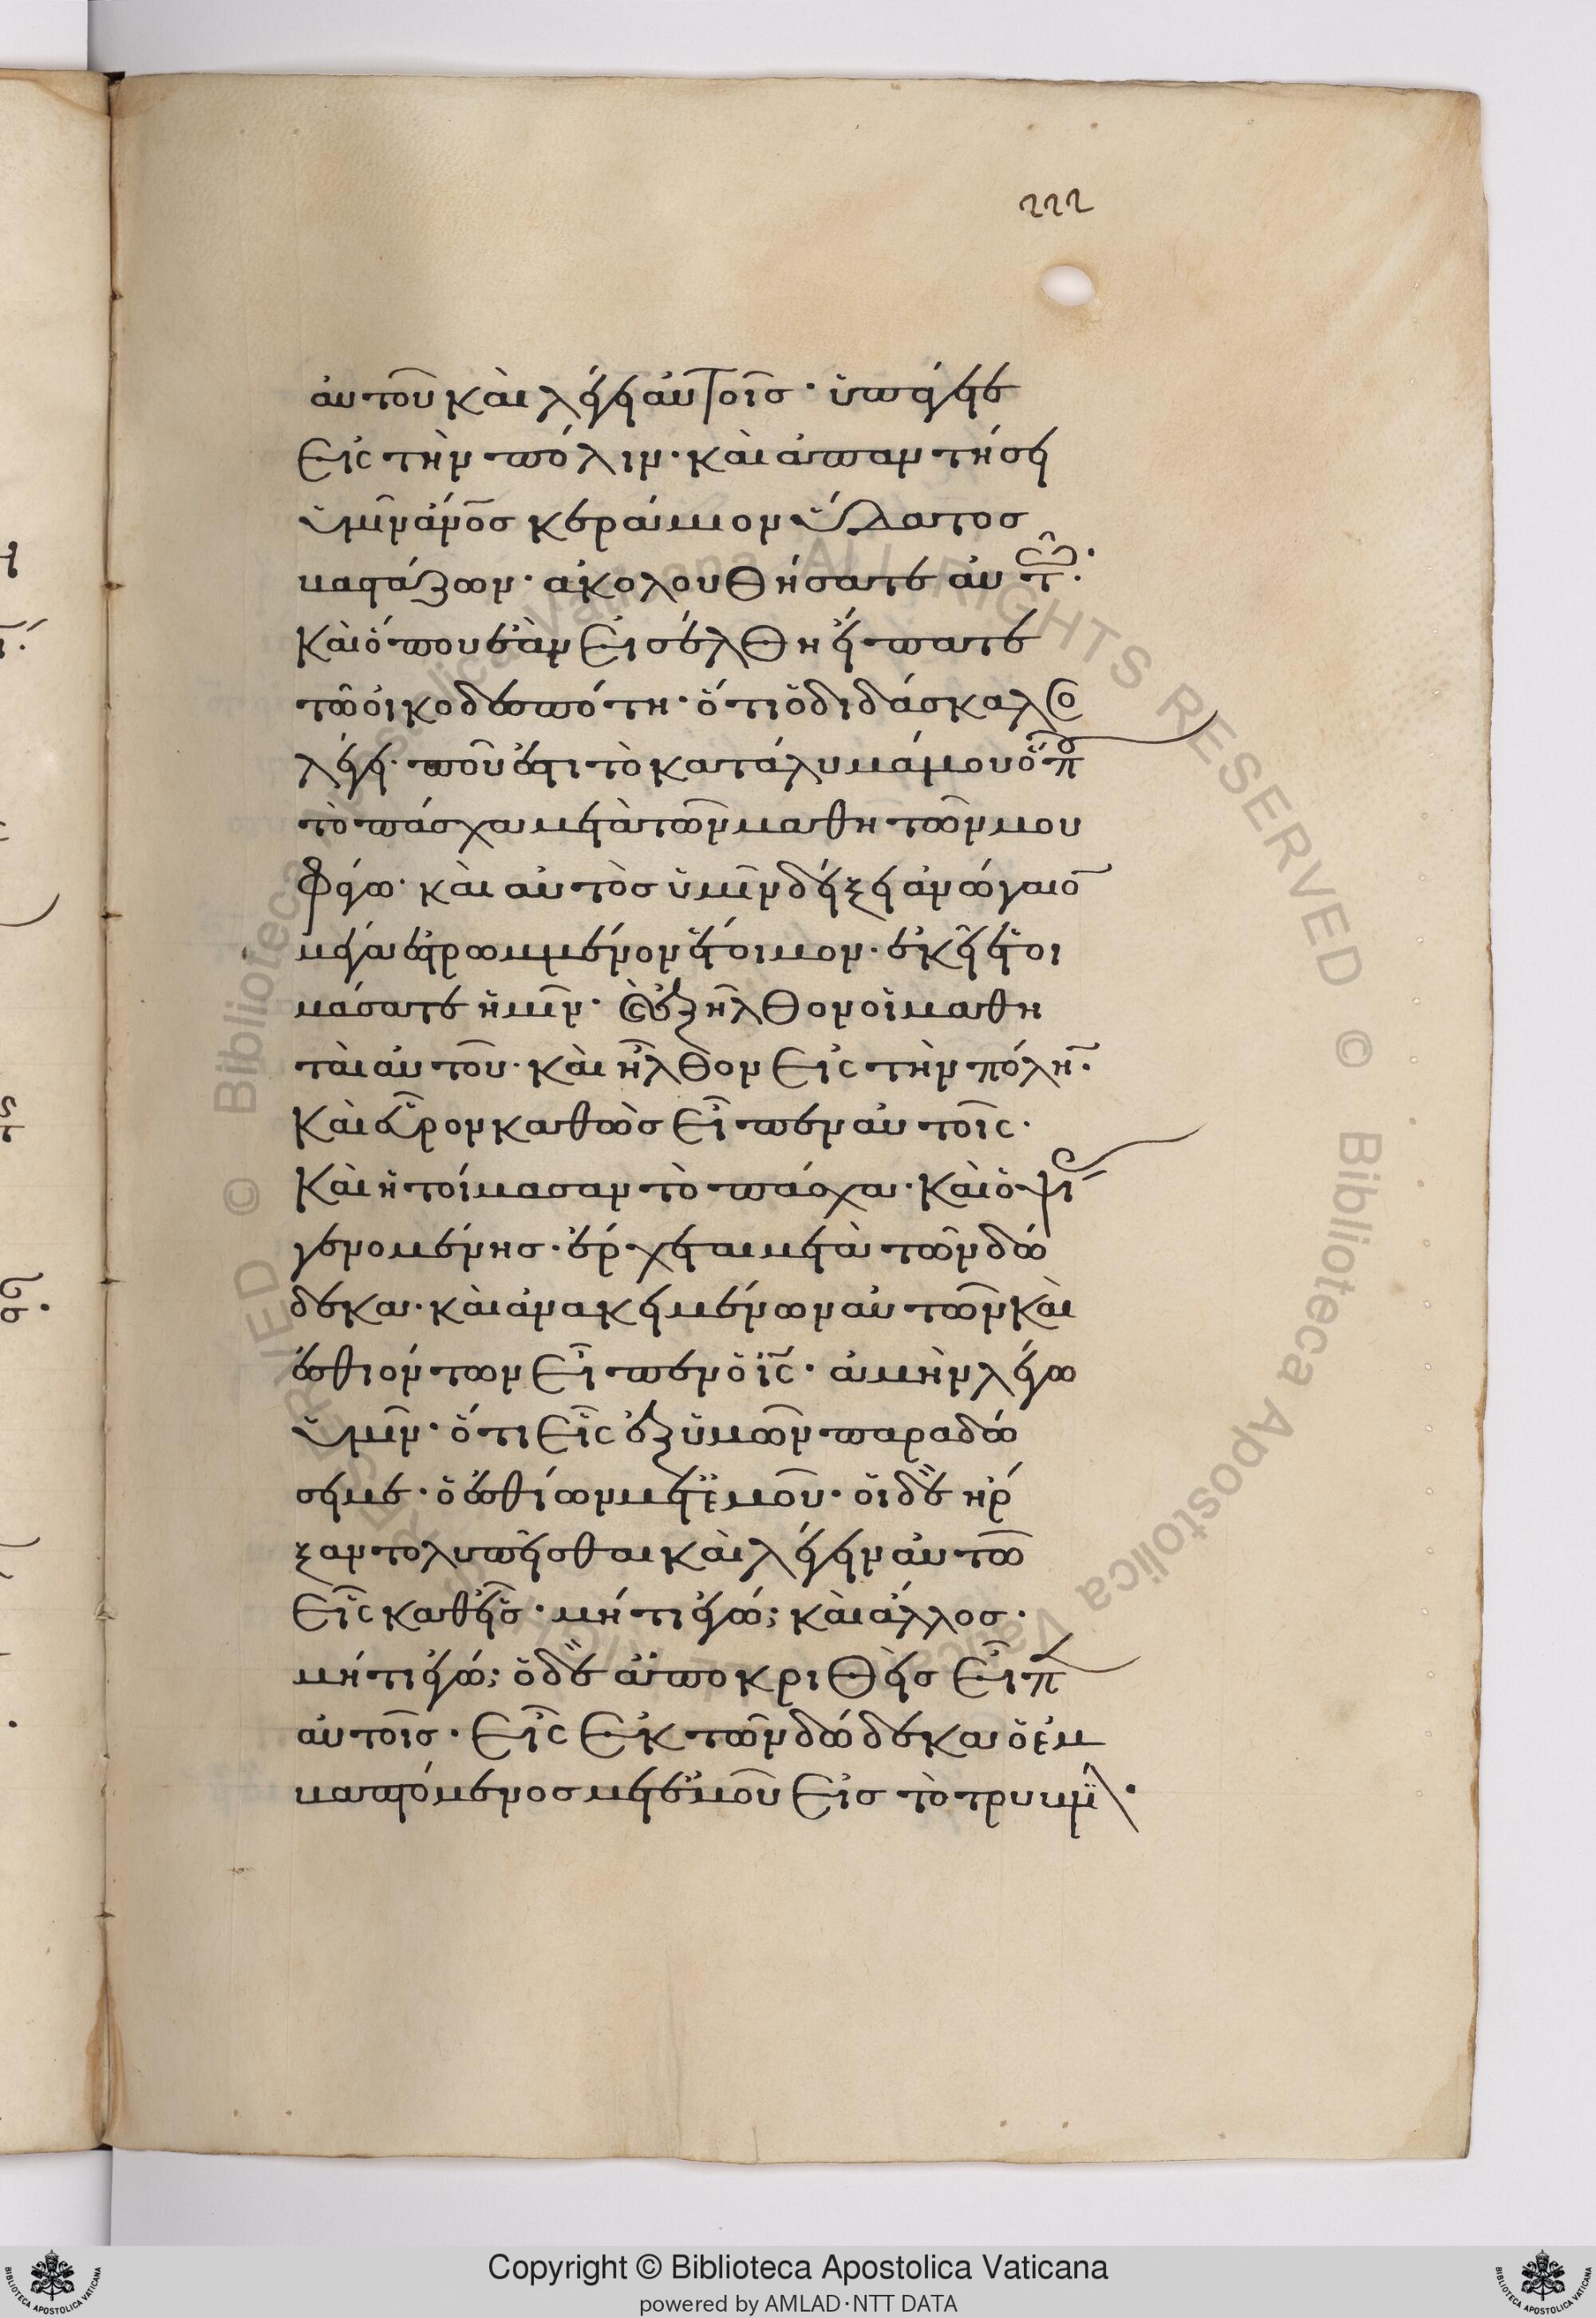 222
αὐτοῦ καὶ λέγει αὐτοῖσ· ὑπάγετε
εἰς τὴν πόλιν· καὶ ἀπαντήσει
ὑμῖν ἄνοσ κεράμιον ὕδατος
βαστάζων· ἀκολουθήσατε αὐτῶ·
καὶ ὅπου ἐὰν εἰσέλθη εἴπατε
τῶ οἰκοδεσπότη· ὅτι ὁ διδάσκαλο
λέγει· ποῦ ἐστι τὸ κατάλυμά μου ὅπου
τὸ πάσχα μετὰ τῶν μαθητῶν μου
φάγω· καὶ αὐτὸσ ὑμῖν δείξει ἀνώγαιον
μέγα ἐστρωμμένον ἕτοιμον· ἐκεῖ ἑτοι
μάσατε ἡμῖν· καὶ ἐξῆλθον οἱ μαθη
ταὶ αὐτοῦ· καὶ ἦλθον εἰς τὴν πόλιν·
καὶ εὗρον καθὼσ εἶπεν αὐτοῖς·
καὶ ἡτοίμασαν τὸ πάσχα· καὶ ὀψίασ
γενομένησ· ἔρχεται μετὰ τῶν δώ
δεκα· καὶ ἀνακειμένων αὐτῶν καὶ
ἐσθιόντων εἶπεν ὁ ἰς· ἀμὴν λέγω
ὑμῖν· ὅτι εἷς ἐξ ὑμῶν παραδώ
σει με· ὁ ἐσθίων μετ' ἐμοῦ· οἱ δὲ ἤρ
ξαντο λυπεῖσθαι καὶ λέγειν αὐτῶ
εἷς καθεῖσ· μήτι ἐγώ; καὶ ἄλλοσ·
μήτι ἐγώ; ὁ δὲ ἀποκριθεὶσ εἶπεν
αὐτοῖσ· εἷς ἐκ τῶν δώδεκα ὁ ἐμ
βαπτόμενοσ μετ' ἐμοῦ εἰσ τὸ τρυβλίον·
© Biblioteca Apostolica Vaticana ALL RIGHTS RESERVED
Copyright © Biblioteca Apostolica Vaticana
powered by AMLAD·NTT DATA